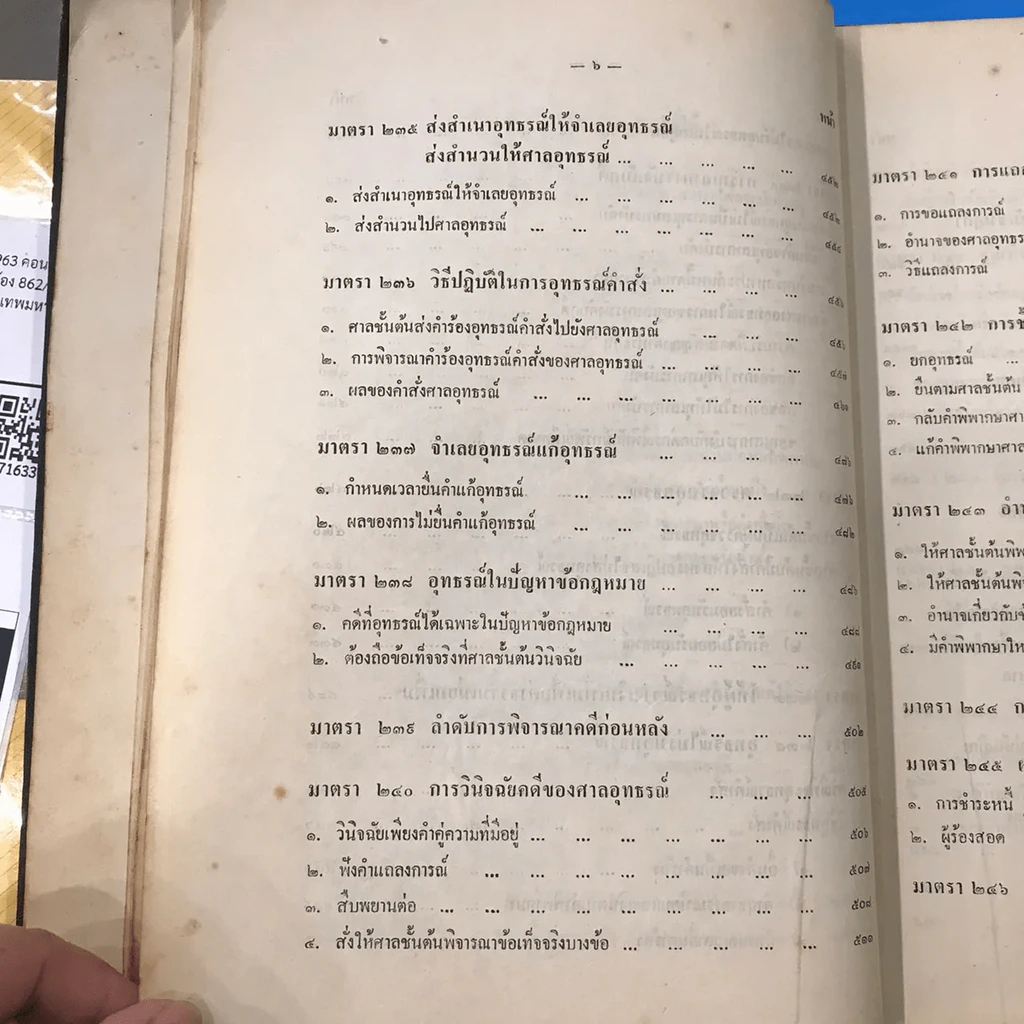 — ๖ —
หน้า
มาตรา ๒๓๕ ส่งสำเนาอุทธรณ์ให้จำเลยอุทธรณ์
ส่งสำนวนให้ศาลอุทธรณ์ ... ... ... ... ... ๔๕๒
๑. ส่งสำเนาอุทธรณ์ให้จำเลยอุทธรณ์ ... ... ... ... ... ... ๔๕๒
๒. ส่งสำนวนไปศาลอุทธรณ์ ... ... ... ... ... ... ... ๔๕๔
มาตรา ๒๓๖ วิธีปฏิบัติในการอุทธรณ์คำสั่ง ... ... ... ... ๔๕๖
๑. ศาลชั้นต้นส่งคำร้องอุทธรณ์คำสั่งไปยังศาลอุทธรณ์ ... ... ... ๔๕๖
๒. การพิจารณาคำร้องอุทธรณ์คำสั่งของศาลอุทธรณ์ ... ... ... ... ๔๕๗
๓. ผลของคำสั่งศาลอุทธรณ์ ... ... ... ... ... ... ๔๖๑
มาตรา ๒๓๗ จำเลยอุทธรณ์แก้อุทธรณ์ ... ... ... ... ๔๗๖
๑. กำหนดเวลายื่นคำแก้อุทธรณ์ ... ... ... ... ... ... ๔๗๖
๒. ผลของการไม่ยื่นคำแก้อุทธรณ์ ... ... ... ... ... ... ๔๘๒
มาตรา ๒๓๘ อุทธรณ์ในปัญหาข้อกฎหมาย ... ... ... ... ๔๘๖
๑. คดีที่อุทธรณ์ได้เฉพาะในปัญหาข้อกฎหมาย ... ... ... ... ๔๘๘
๒. ต้องถือข้อเท็จจริงที่ศาลชั้นต้นวินิจฉัย ... ... ... ... ... ๔๙๑
มาตรา ๒๓๙ ลำดับการพิจารณาคดีก่อนหลัง ... ... ... ๕๐๒
มาตรา ๒๔๐ การวินิจฉัยคดีของศาลอุทธรณ์ ... ... ... ๕๐๕
๑. วินิจฉัยเพียงคำคู่ความที่มีอยู่ ... ... ... ... ... ... ... ๕๐๖
๒. ฟังคำแถลงการณ์ ... ... ... ... ... ... ... ... ๕๐๗
๓. สืบพยานต่อ ... ... ... ... ... ... ... ... ... ๕๐๘
๔. สั่งให้ศาลชั้นต้นพิจารณาข้อเท็จจริงบางข้อ ... ... ... ... ... ๕๑๑
มาตรา ๒๔๑
๑. การขอแถลงการณ์
๒. อำนาจของศาล
๓. วิธีแถลงการณ์
มาตรา ๒๔๒
๑. ยกอุทธรณ์ ...
๒. ยืนตามศาลชั้นต้น
๓. กลับคำพิพากษา
๔. แก้คำพิพากษา
มาตรา ๒๔๓
๑. ให้ศาลชั้นต้น
๒. ให้ศาลชั้นต้น
๓. อำนาจเกี่ยวกับ
๔. มีคำพิพากษา
มาตรา ๒๔๔
มาตรา ๒๔๕
๑. การชำระหนี้
๒. ผู้ร้องสอด
มาตรา ๒๔๖
963
862/
71633